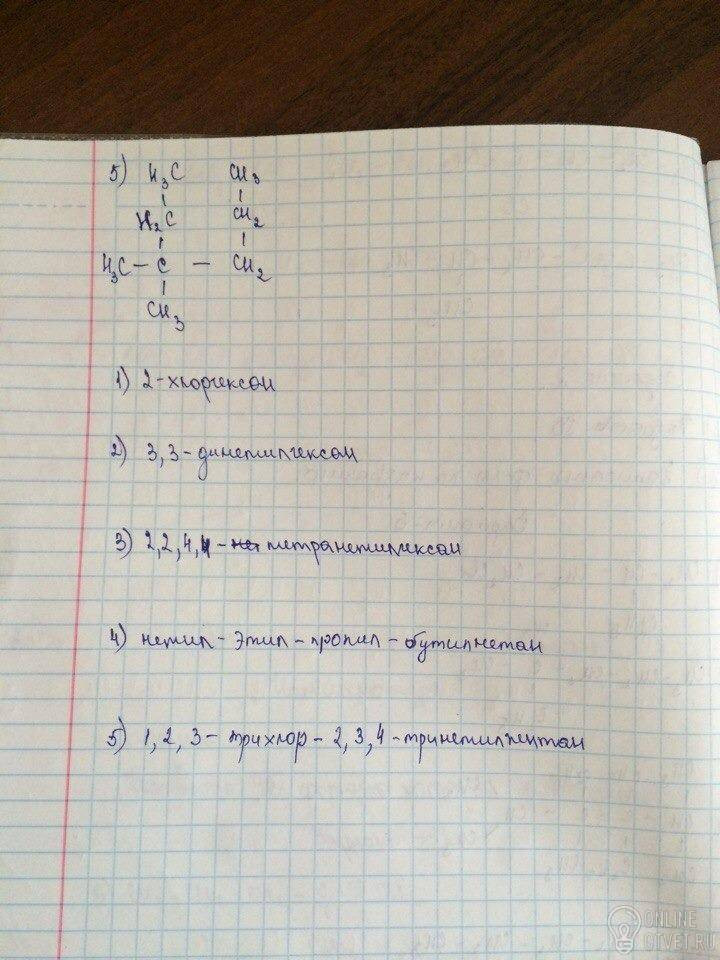 5) H₃C CH₃
H₂C CH₂
H₃C – C – CH₂
CH₃
1) 2-хлоргексан
2) 3,3-диметилгексан
3) 2,2,4,4-тетраметилгексан
4) метил-этил-пропил-бутилметан
5) 1,2,3-трихлор-2,3,4-триметилпентан
ONLINE
OTVET.RU